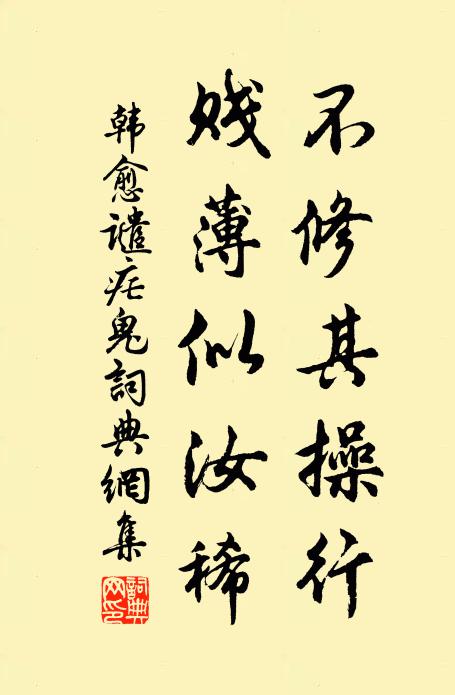 不修其操行
贱薄似汝稀
韩愈谴疟鬼詞典網集
詞典网印